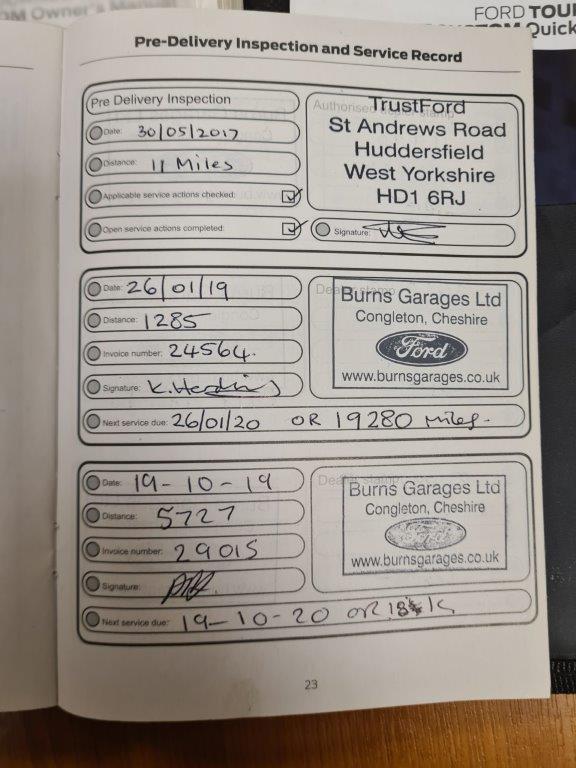 OM Owner's Manual
FORD TOU
CUSTOM Quick
Pre-Delivery Inspection and Service Record
Pre Delivery Inspection
Date: 30/05/2017
Distance: 11 Miles
Applicable service actions checked:
Open service actions completed:
TrustFord
St Andrews Road
Huddersfield
West Yorkshire
HD1 6RJ
Signature:
Date: 26/01/19
Distance: 1285
Invoice number: 24564.
Signature:
Next service due: 26/01/20 OR 19280 miles.
Burns Garages Ltd
Congleton, Cheshire
Ford
www.burnsgarages.co.uk
Date: 19-10-19
Distance: 5727
Invoice number: 29015
Signature:
Next service due: 19-10-20 OR
Burns Garages Ltd
Congleton, Cheshire
Ford
www.burnsgarages.co.uk
23